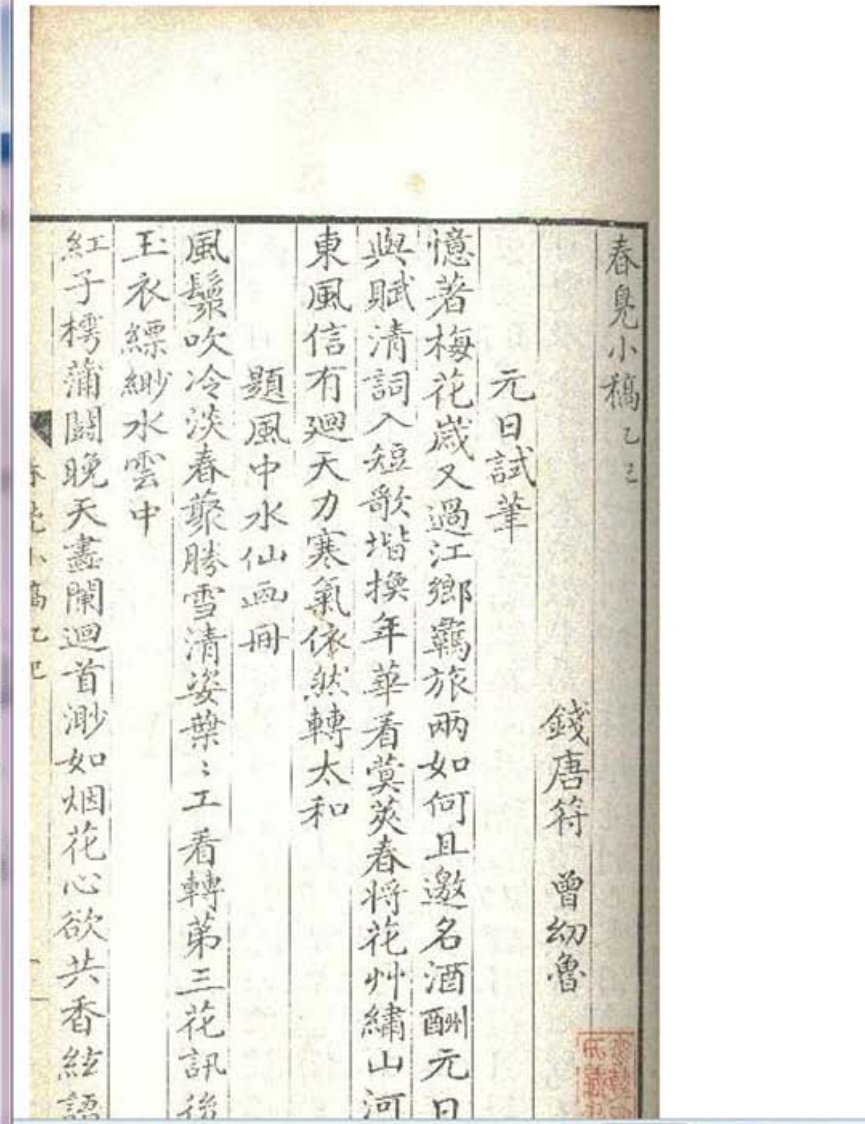 春覺小稿乙巳
錢唐符 曾幼魯
元日試筆
憶著梅花歲又過江鄉羈旅兩如何且邀名酒酬元日
與賦清詞入短歌堦換年華看蓂莢春將花艸繡山河
東風信有迴天力寒氣依然轉太和
題風中水仙画冊
風鬟吹冷淡春藂勝雪清姿葉〻工看轉第三花訊後
玉衣縹緲水雲中
紅子樗蒲鬭晚天畫闌迴首渺如烟花心欲共香絃語
春覺小稿乙巳